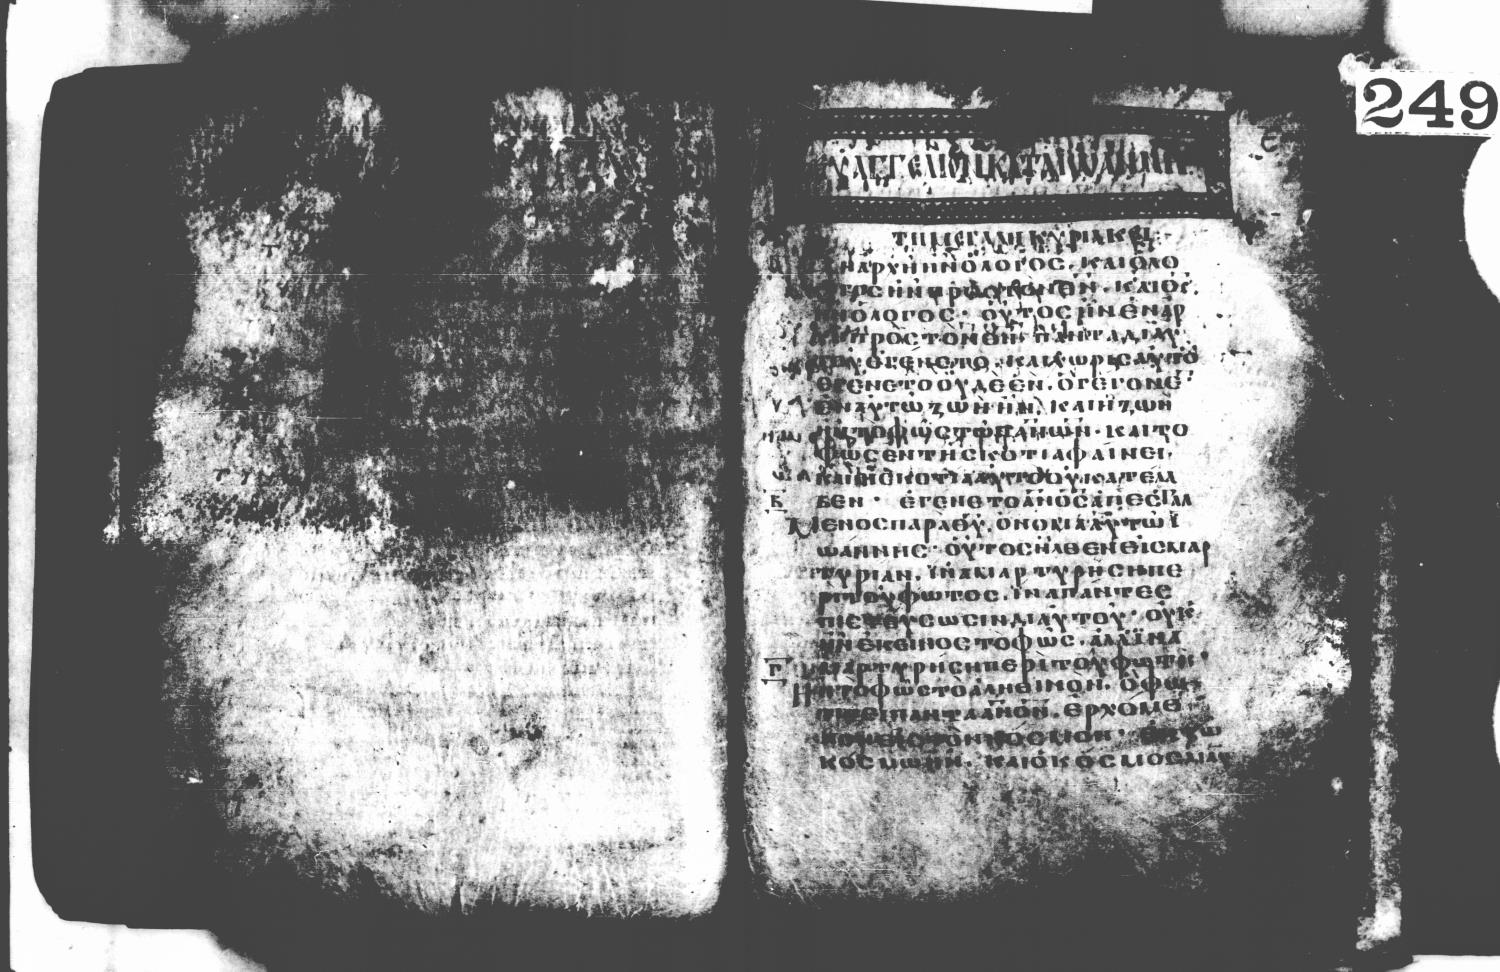 249
ΕΥΑΓΓΕΛΙΟΝ ΚΑΤΑ ΙΩΑΝΝΗΝ
ΤΗ ΜΕΓΑΛΗ ΚΥΡΙΑΚΕΙ
ΕΝΑΡΧΗΗΝΟΛΟΓΟΣ· ΚΑΙΟΛΟ
ΓΟΣΗΝΠΡΟΣΤΟΝΘΝ· ΚΑΙΘΣ
ΗΝΟΛΟΓΟΣ· ΟΥΤΟΣΗΝΕΝΑΡ
ΧΗΠΡΟΣΤΟΝΘΝ· ΠΑΝΤΑΔΙΑΥ
ΤΟΥΕΓΕΝΕΤΟ· ΚΑΙΧΩΡΙΣΑΥΤΟ
ΕΓΕΝΕΤΟΟΥΔΕΕΝ· ΟΓΕΓΟΝΕ
ΕΝΑΥΤΩΖΩΗΗΝ· ΚΑΙΗΖΩΗ
ΗΝΤΟΦΩΣΤΩΝΑΝΩΝ· ΚΑΙΤΟ
ΦΩΣΕΝΤΗΣΚΟΤΙΑΦΑΙΝΕΙ·
ΚΑΙΗΣΚΟΤΙΑΑΥΤΟΟΥΚΑΤΕΛΑ
Β ΒΕΝ· ΕΓΕΝΕΤΟΑΝΟΣΑΠΕΣΤΑΛ
ΜΕΝΟΣΠΑΡΑΘΥ· ΟΝΟΜΑΑΥΤΩΙ
ΩΑΝΝΗΣ· ΟΥΤΟΣΗΛΘΕΝΕΙΣΜΑΡ
ΤΥΡΙΑΝ· ΙΝΑΜΑΡΤΥΡΗΣΗΠΕ
ΡΙΤΟΥΦΩΤΟΣ· ΙΝΑΠΑΝΤΕΣ
ΠΙΣΤΕΥΣΩΣΙΝΔΙΑΥΤΟΥ· ΟΥΚ
ΗΝΕΚΕΙΝΟΣΤΟΦΩΣ· ΑΛΛΙΝΑ
Γ ΜΑΡΤΥΡΗΣΗΠΕΡΙΤΟΥΦΩΤΟ
ΗΝΤΟΦΩΣΤΟΑΛΗΘΙΝΟΝ· ΟΦΩ
ΤΙΖΕΙΠΑΝΤΑΑΝΟΝ· ΕΡΧΟΜΕ
ΝΟΝΕΙΣΤΟΝΚΟΣΜΟΝ· ΕΝΤΩ
ΚΟΣΜΩΗΝ· ΚΑΙΟΚΟΣΜΟΣΔΙΑΥ